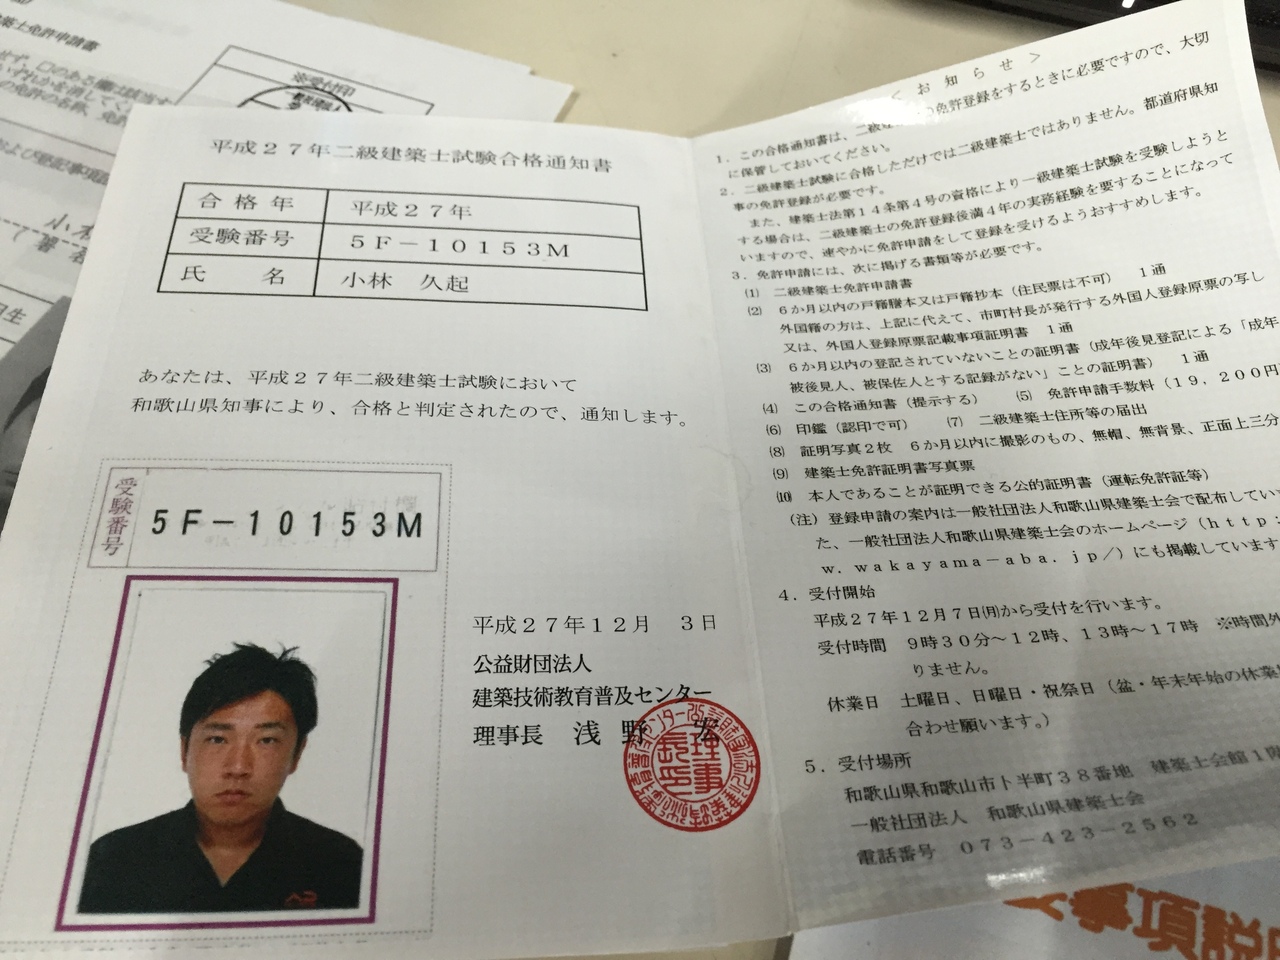 平成２７年二級建築士試験合格通知書
合格年 平成２７年
受験番号 ５Ｆ－１０１５３Ｍ
氏　名 小林　久起
あなたは、平成２７年二級建築士試験において
和歌山県知事により、合格と判定されたので、通知します。
受験番号 5F-10153M
平成２７年１２月　３日
公益財団法人
建築技術教育普及センター
理事長　浅　野　宏
＜お知らせ＞
１．この合格通知書は、二級建の免許登録をするときに必要ですので、大切
に保管しておいてください。
２．二級建築士試験に合格しただけでは二級建築士ではありません。都道府県知
事の免許登録が必要です。
また、建築士法第１４条第４号の資格により一級建築士試験を受験しようと
する場合は、二級建築士の免許登録後満４年の実務経験を要することになって
いますので、速やかに免許申請をして登録を受けるようおすすめします。
３．免許申請には、次に掲げる書類等が必要です。
⑴　二級建築士免許申請書
⑵　６か月以内の戸籍謄本又は戸籍抄本（住民票は不可）　１通
外国籍の方は、上記に代えて、市町村長が発行する外国人登録原票の写し
又は、外国人登録原票記載事項証明書　１通
⑶　６か月以内の登記されていないことの証明書（成年後見登記による「成年
被後見人、被保佐人とする記録がない」ことの証明書）　１通
⑷　この合格通知書（提示する）　⑸　免許申請手数料（１９，２００円
⑹　印鑑（認印で可）　⑺　二級建築士住所等の届出
⑻　証明写真２枚　６か月以内に撮影のもの、無帽、無背景、正面上三分
⑼　建築士免許証明書写真票
⑽　本人であることが証明できる公的証明書（運転免許証等）
（注）登録申請の案内は一般社団法人和歌山県建築士会で配布してい
た、一般社団法人和歌山県建築士会のホームページ（ｈｔｔｐ：
ｗ．ｗａｋａｙａｍａ－ａｂａ．ｊｐ／）にも掲載しています
４．受付開始
平成２７年１２月７日㈪から受付を行います。
受付時間　９時３０分～１２時、１３時～１７時　※時間外
りません。
休業日　土曜日、日曜日・祝祭日（盆・年末年始の休業
合わせ願います。）
５．受付場所
和歌山県和歌山市ト半町３８番地　建築士会館１階
一般社団法人　和歌山県建築士会
電話番号　０７３－４２３－２５６２
築士免許申請書
※受付印
事項説